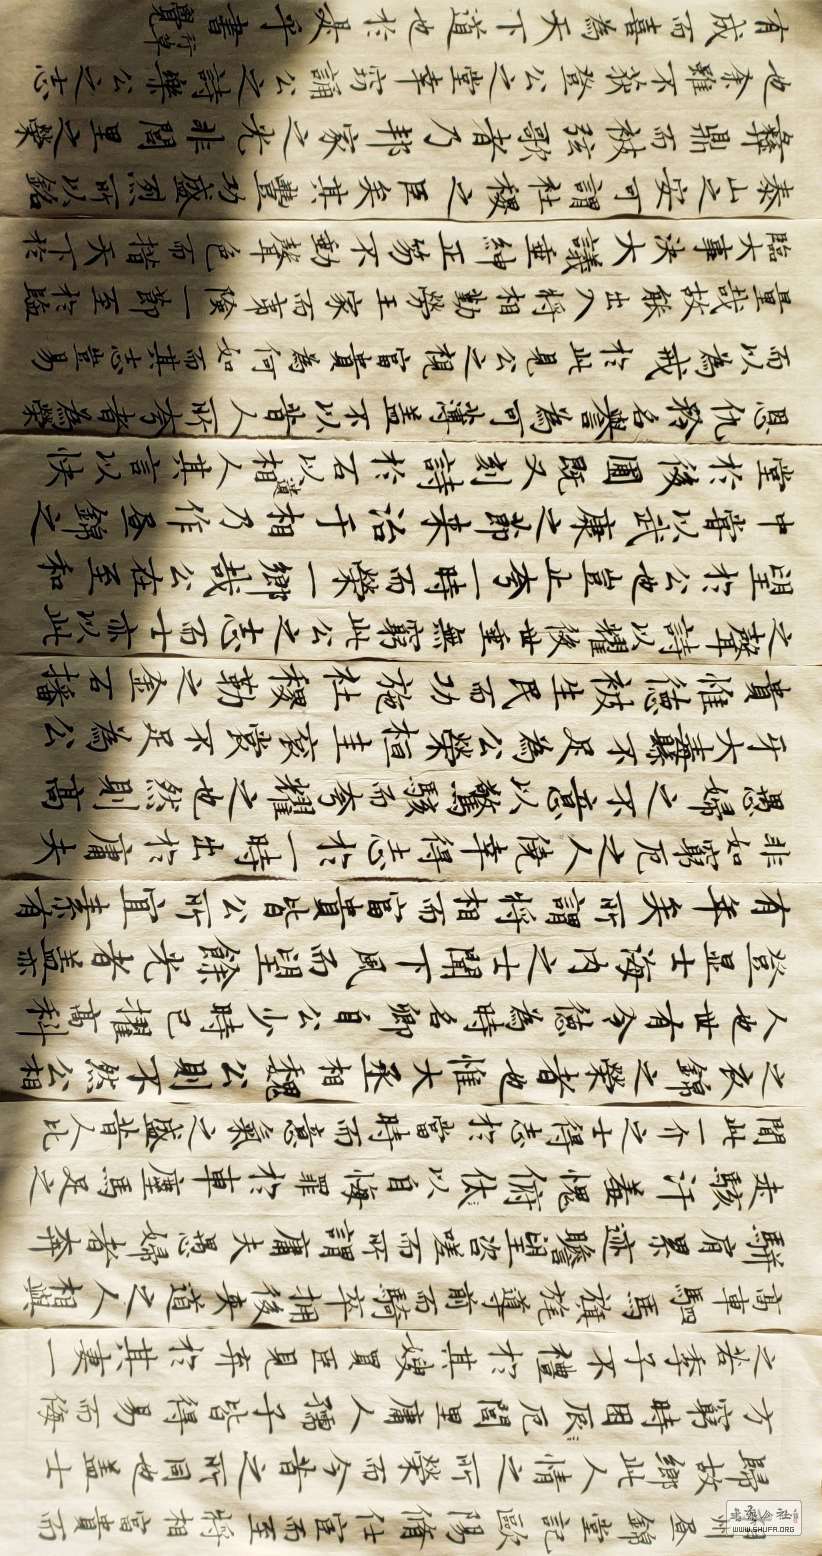 州昼錦堂記歐陽脩仕宦而至將相富貴而
歸故鄉此人情之所榮而今昔之所同也蓋士
方窮時困辰厄閭里庸人孺子皆得易而侮
之若季子不禮於其嫂買臣見弃於其妻一
高車駟馬旗旄導前而騎卒擁後夾道之人相與
駢肩累迹瞻望咨嗟而所謂庸夫愚婦者奔
走駭汗羞愧俯伏以自悔罪於車塵馬足之
間此一介之士得志於當時而意氣之盛昔人比
之衣錦之榮者也惟大丞相魏公則不然公相
人也世有令德為時名卿自公少時已擢高科
登显士海内之士聞下風而望餘光者蓋亦
有年矣所謂將相而富貴皆公所宜素有
非如窮厄之人僥幸得志於一時出於庸夫
愚婦之不意以驚駭而夸耀之也然則高
牙大纛不足為公榮桓圭袞裳不足為公
貴惟德被生民而功施社稷勒之金石播
之聲詩以耀後世垂無窮此公之志而士亦以此
望於公也豈止夸一時而榮一鄉哉公在至和
中嘗以武康之節来治于相乃作昼錦之
堂於後圃既又刻詩於石以遺相人其言以快
恩仇矜名譽為可薄蓋不以昔人所夸者為榮
而以為戒於此見公之視富貴為何如而其志豈易
量哉故能出入將相勤勞王家而夷險一節至於臨
臨大事決大議垂紳正笏不動聲色而措天下於
泰山之安可謂社稷之臣矣其豐功盛烈所以銘
彝鼎而被弦歌者乃邦家之光非閭里之榮
也余雖不获登公之堂幸窃誦公之詩樂公之志
有成而喜為天下道也於是乎書
WWW.SHUFA.ORG